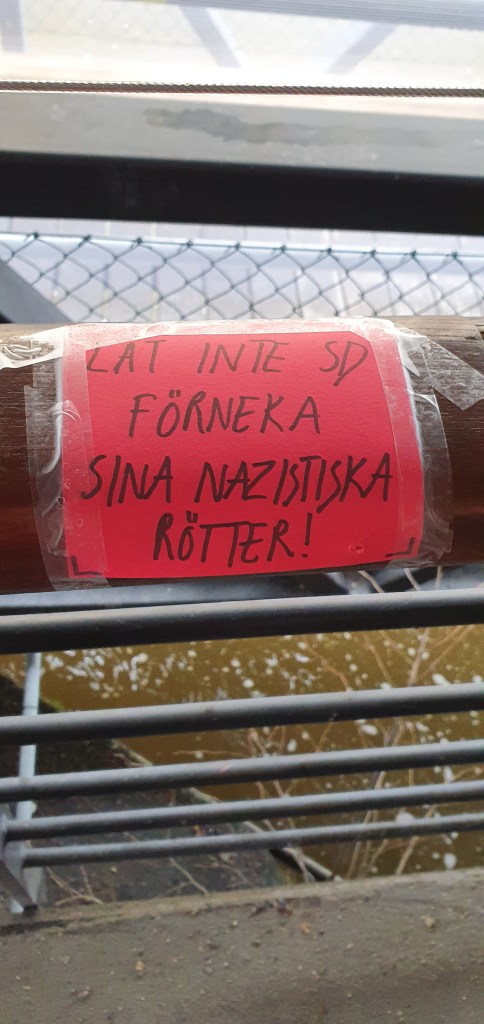 LÅT INTE SD
FÖRNEKA
SINA NAZISTISKA
RÖTTER!